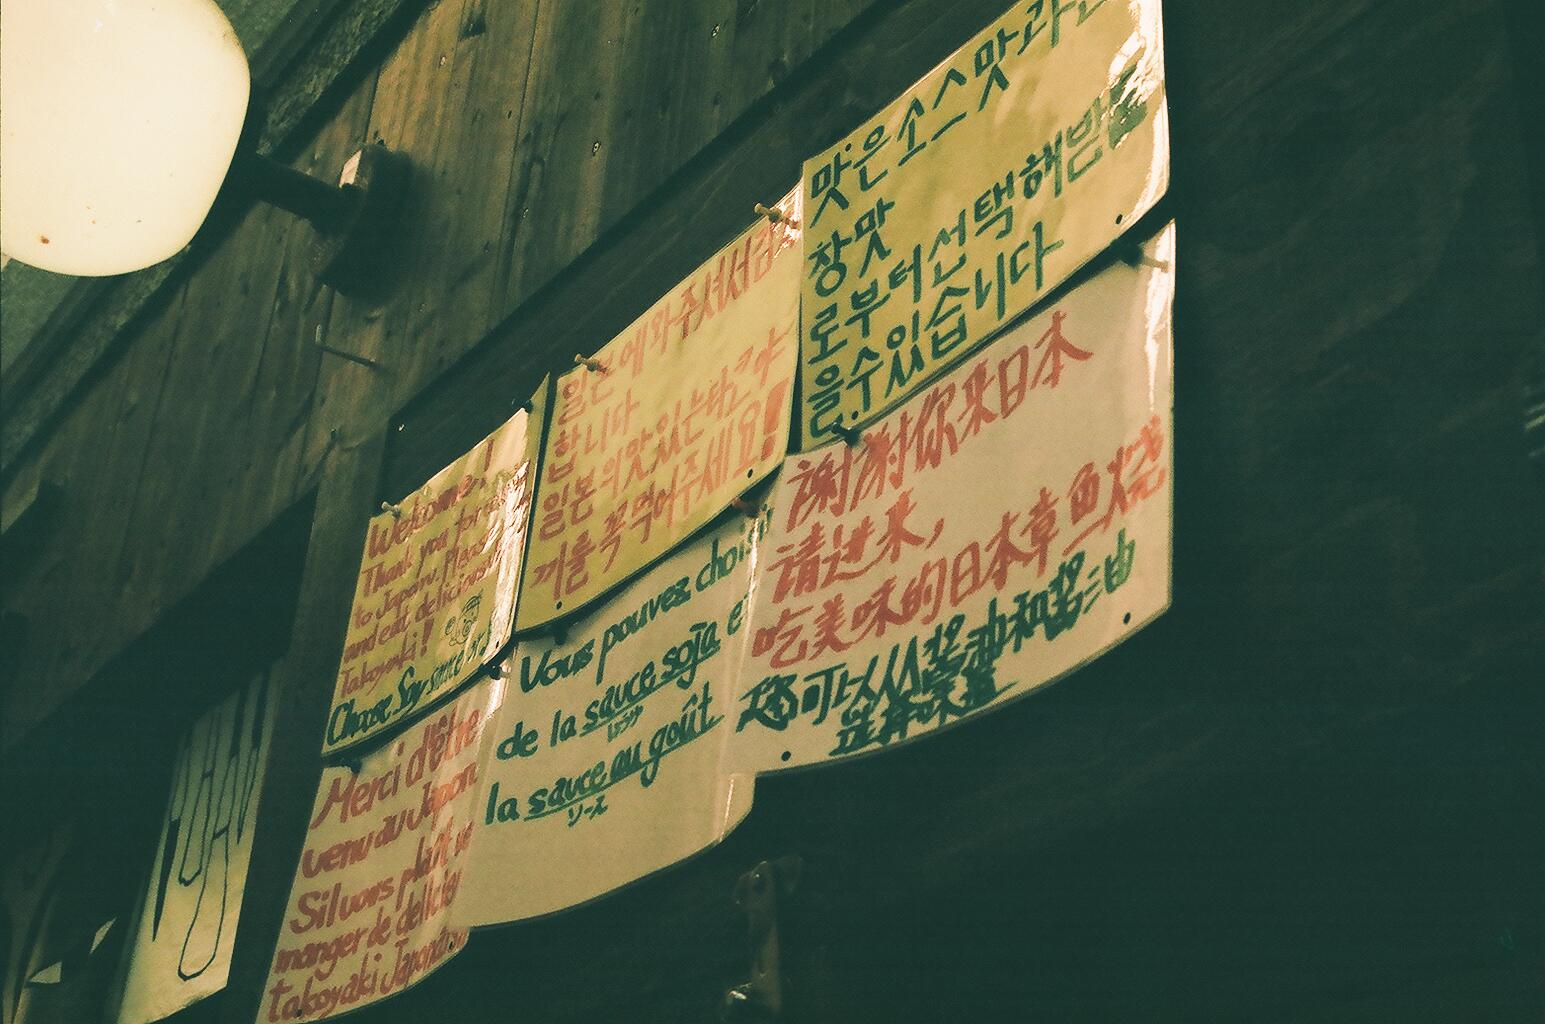 Welcome!
Thank you for
to Japan. Please
and eat delicious
Takoyaki!
Choose Soy sauce or
일본에 와주셔서 감
합니다
일본의 맛있는 타코야
끼를 꼭 먹어주세요!
맛은 소스맛과
장맛
로부터 선택해 받
을 수 있습니다
Merci d'être
venu au Japon
S'il vous plaît
manger de délici
takoyaki Japonais
Vous pouvez choisir
de la sauce soja et
しょうゆ
la sauce au goût
ソース
謝謝你来日本
请进来，
吃美味的日本章鱼烧
您可以从酱油和
选择味道